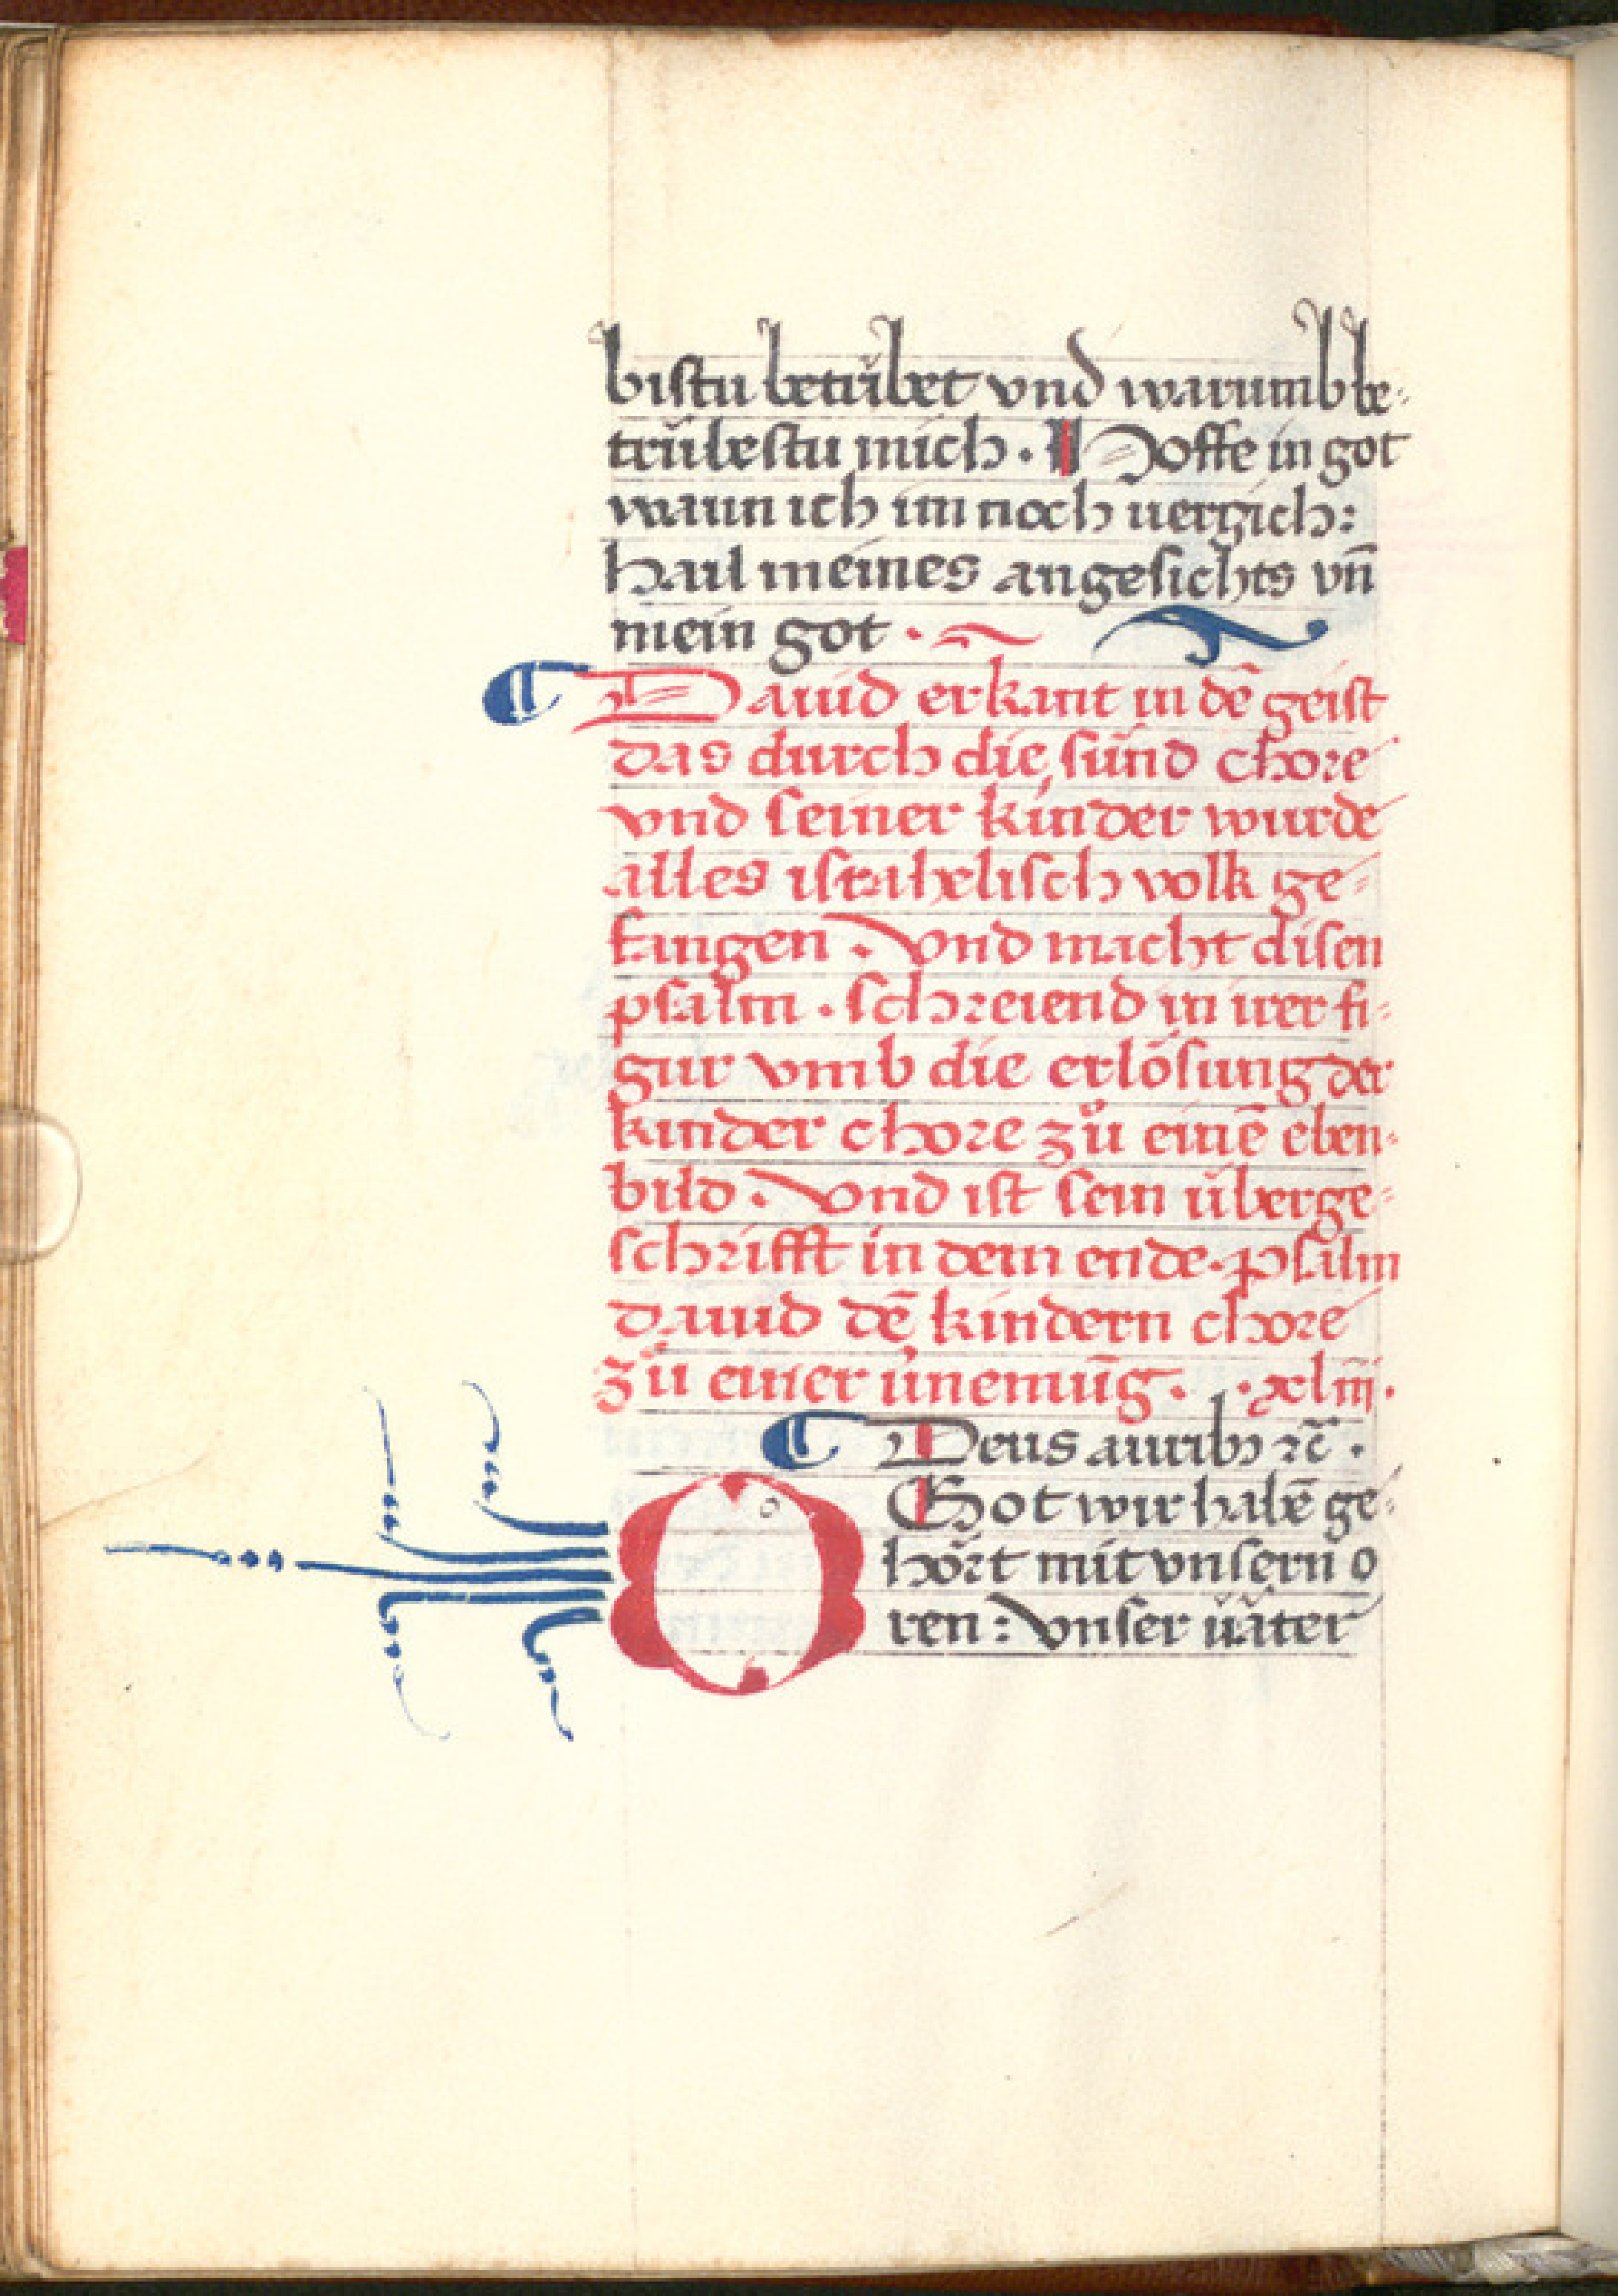 bistu betrübet vnd warumb be-
trübestu mich . Hoffe in got
wann ich im noch uergich:
hail meines angesichts vn̄
mein got .
Dauid erkant in dē geist
das durch die sünd chore
vnd seiner kinder wurde
alles israhelisch volk ge-
fangen . Vnd macht disen
psalm . schreiend in irer fi-
gur vmb die erlösung der
kinder chore zů einē eben-
bild . Vnd ist sein überge-
schrifft in dem ende . psalm
dauid dē kindern chore
zů einer ůnemūg . .xliij.
Deus auribꝫ ⁊c̄ .
O Got wir habē ge-
hört mit vnsern o
ren : Vnser üäter